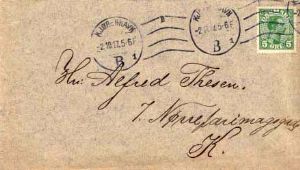 KJØBENHAVN
-2.10.17.5-6F
B 1
KJØBENHAVN
-2.10.17.5-6F
B 1
5 ØRE 5
Hr. Alfred Thesen.
7. Nørrefarimagsgade
K.